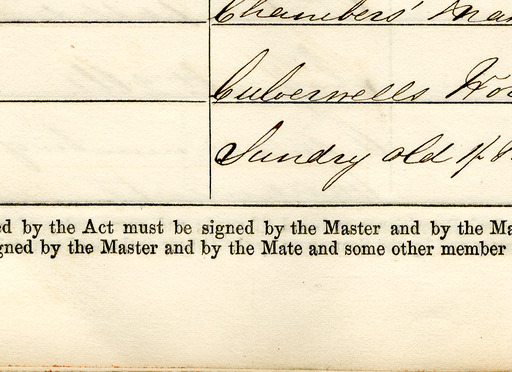 Chambers' Man
Culverwells Ho
Sundry old
ed by the Act must be signed by the Master and by the Ma
gned by the Master and by the Mate and some other member